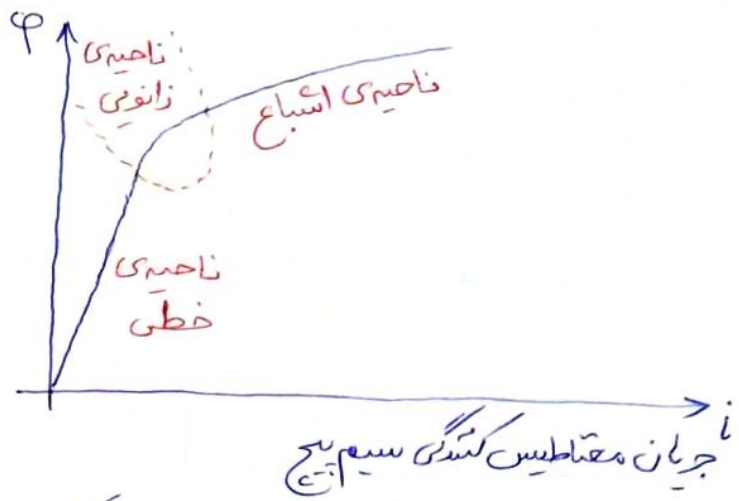 φ
ناحیه‌ی
زانویی
ناحیه‌ی اشباع
ناحیه‌ی
خطی
i
جریان مغناطیس کنندگی سیم پیچ